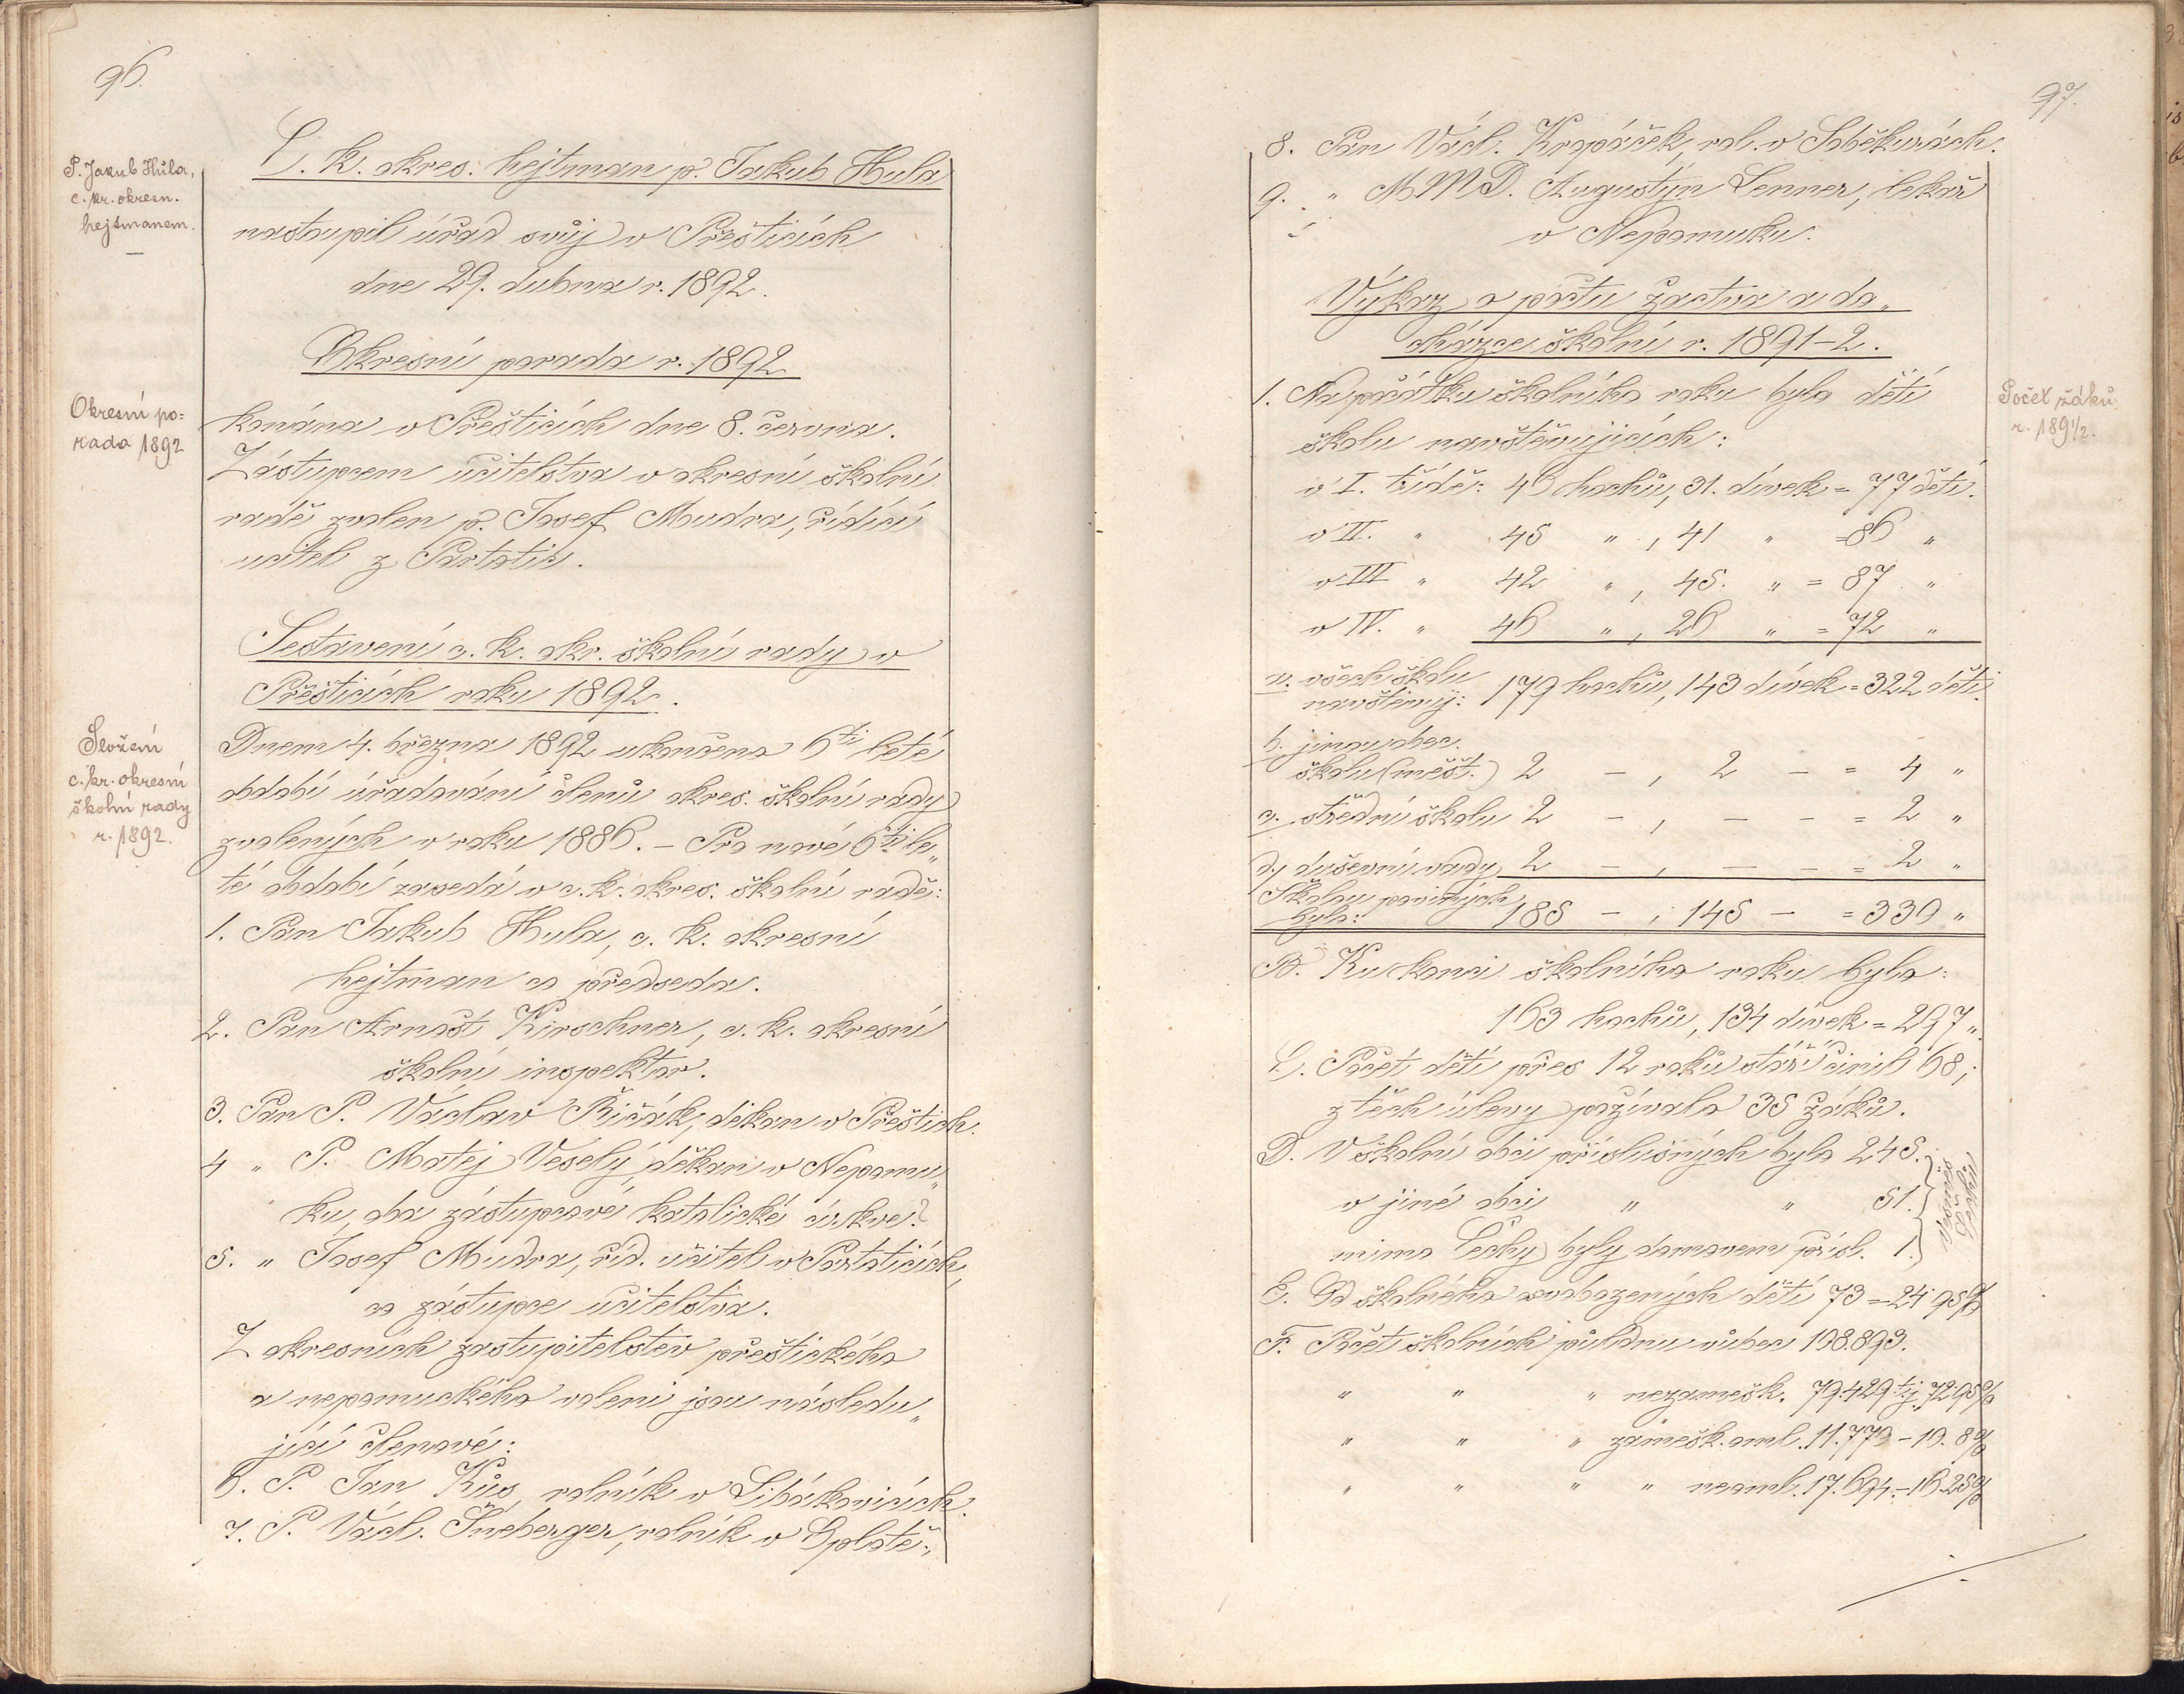 96.
P. Jakub Hůla,
c. kr. okresn.
hejtmanem.
C. k. okres. hejtman p. Jakub Hula
nastoupil úřad svůj v Přešticích
dne 29. dubna r. 1892.
Okresní porada r. 1892
Okresní po=
rada 1892
konána v Přešticích dne 8. června.
Zástupcem učitelstva v okresní školní
radě zvolen p. Josef Mudra, řídící
učitel z Partoltic.
Sestavení c. k. okr. školní rady v
Přešticích roku 1892.
Složení
c. kr. okresní
školní rady
r. 1892.
Dnem 4. března 1892 ukončeno 6ti leté
období úřadování členů okres. školní rady
zvolených v roku 1886. – Pro nové 6ti le„
té období zasedá v c. k. okres. školní radě:
1. Pan Jakub Hula, c. k. okresní
hejtman co předseda.
2. Pan Arnošt Kirschner, c. k. okresní
školní inspektor.
3. Pan P. Václav Řičák, děkan v Přeštich.
4 „ P. Matěj Veselý, děkan v Nepomu„
ku, oba zástupcové katolické církve.
5. „ Josef Mudra, říd. učitel v Partolticích,
co zástupce učitelstva.
Z okresních zastupitelstev přeštického
a nepomuckého voleni jsou následu„
jící členové:
6. P. Jan Kůs, rolník v Libákovicích.
7. P. Václ. Šneberger, rolník v Oplotě„
97.
8. Pan Václ. Kropáček, rol. v Soběkurách.
9. „ MMD. Augustýn Lenner, lekař
v Nepomuku.
Výkaz o počtu žactva a do„
cházce školní r. 1891–2.
Počet žáků
r. 1891/2.
1. Na počátku školního roku bylo dětí
školu navštěvujících:
v I. třídě: 46 hochů, 31. dívek = 77 dětí.
v II. „ 45 „ , 41 „ = 86 „
v III „ 42 „ , 45. „ = 87 „
v IV. „ 46 „ , 26 „ = 72 „
a. všech školu
navštěvuj: 179 hochů, 143 dívek = 322 dětí
b. jinou obec.
školu (měšť.) 2 – , 2 – = 4 „
c. střední školu 2 – , – – = 2 „
d, duševní vady 2 – , – – = 2 „
Školou povinných
bylo: 185 – , 145 – = 330 „
B. Ku konci školního roku bylo:
163 hochů, 134 dívek = 297 „
C. Počet dětí přes 12 roků stáří činil 68;
z těch úlevy požívalo 35 žáků.
D. V školní obci příslušných bylo 245.
v jiné obci „ „ 51.
mimo Čechy byly domovem přísl. 1.
E. Od školného osvobozených dětí 73 = 24·95%
F. Počet školních půldnů vůbec 108.893.
„ „ „ nezamešk. 79.429 tj. 72·95%
„ „ „ zamešk. oml. 11.770 – 10.8%
„ „ „ „ neoml. 17.694 – 16.25%